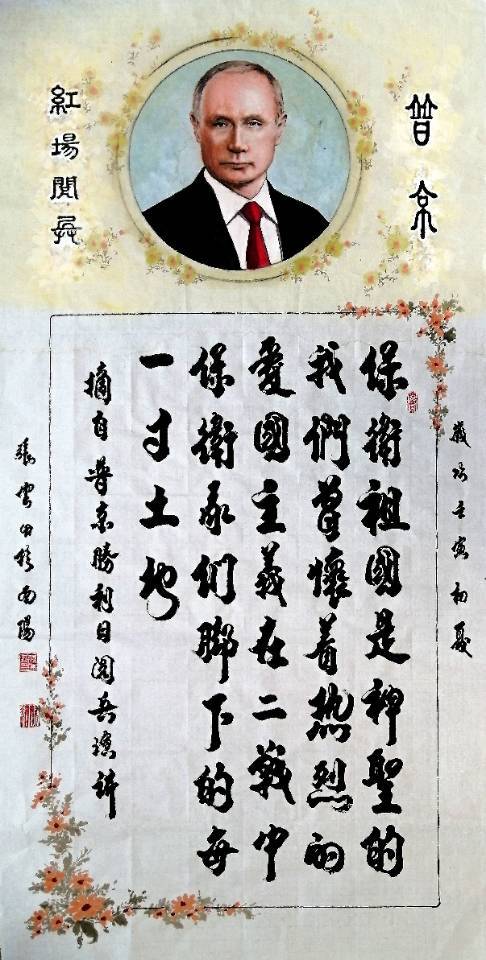 普京
紅場閲兵
歲次壬寅初夏
保衛祖國是神聖的
我們曾懷着热烈的
愛國主義在二戰中
保衛我们脚下的每
一寸土地
摘自普京勝利日阅兵演讲
張雲田於南陽